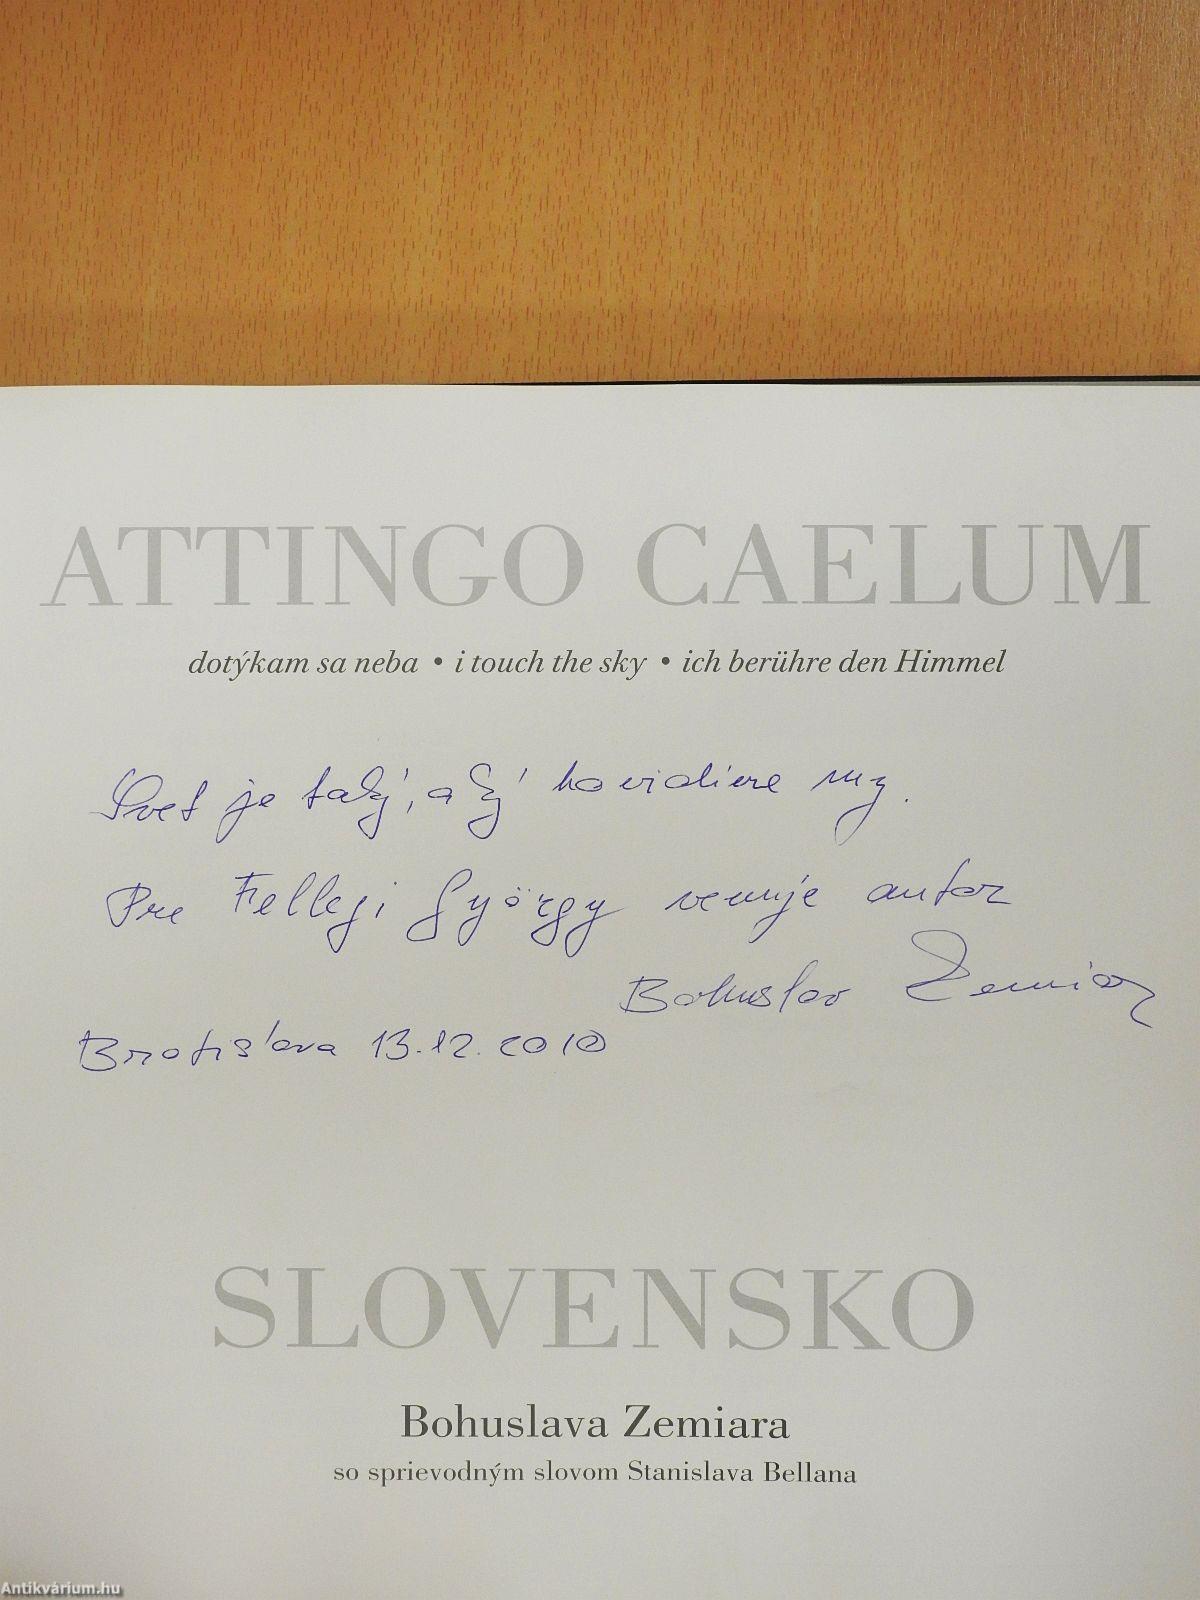 ATTINGO CAELUM
dotýkam sa neba • i touch the sky • ich berühre den Himmel
Svet je taký, aký ho vidíme my.
Pre Fellegi György venuje autor
Bohuslav Zemiar
Bratislava 13.12.2010
SLOVENSKO
Bohuslava Zemiara
so sprievodným slovom Stanislava Bellana
Antikvárium.hu